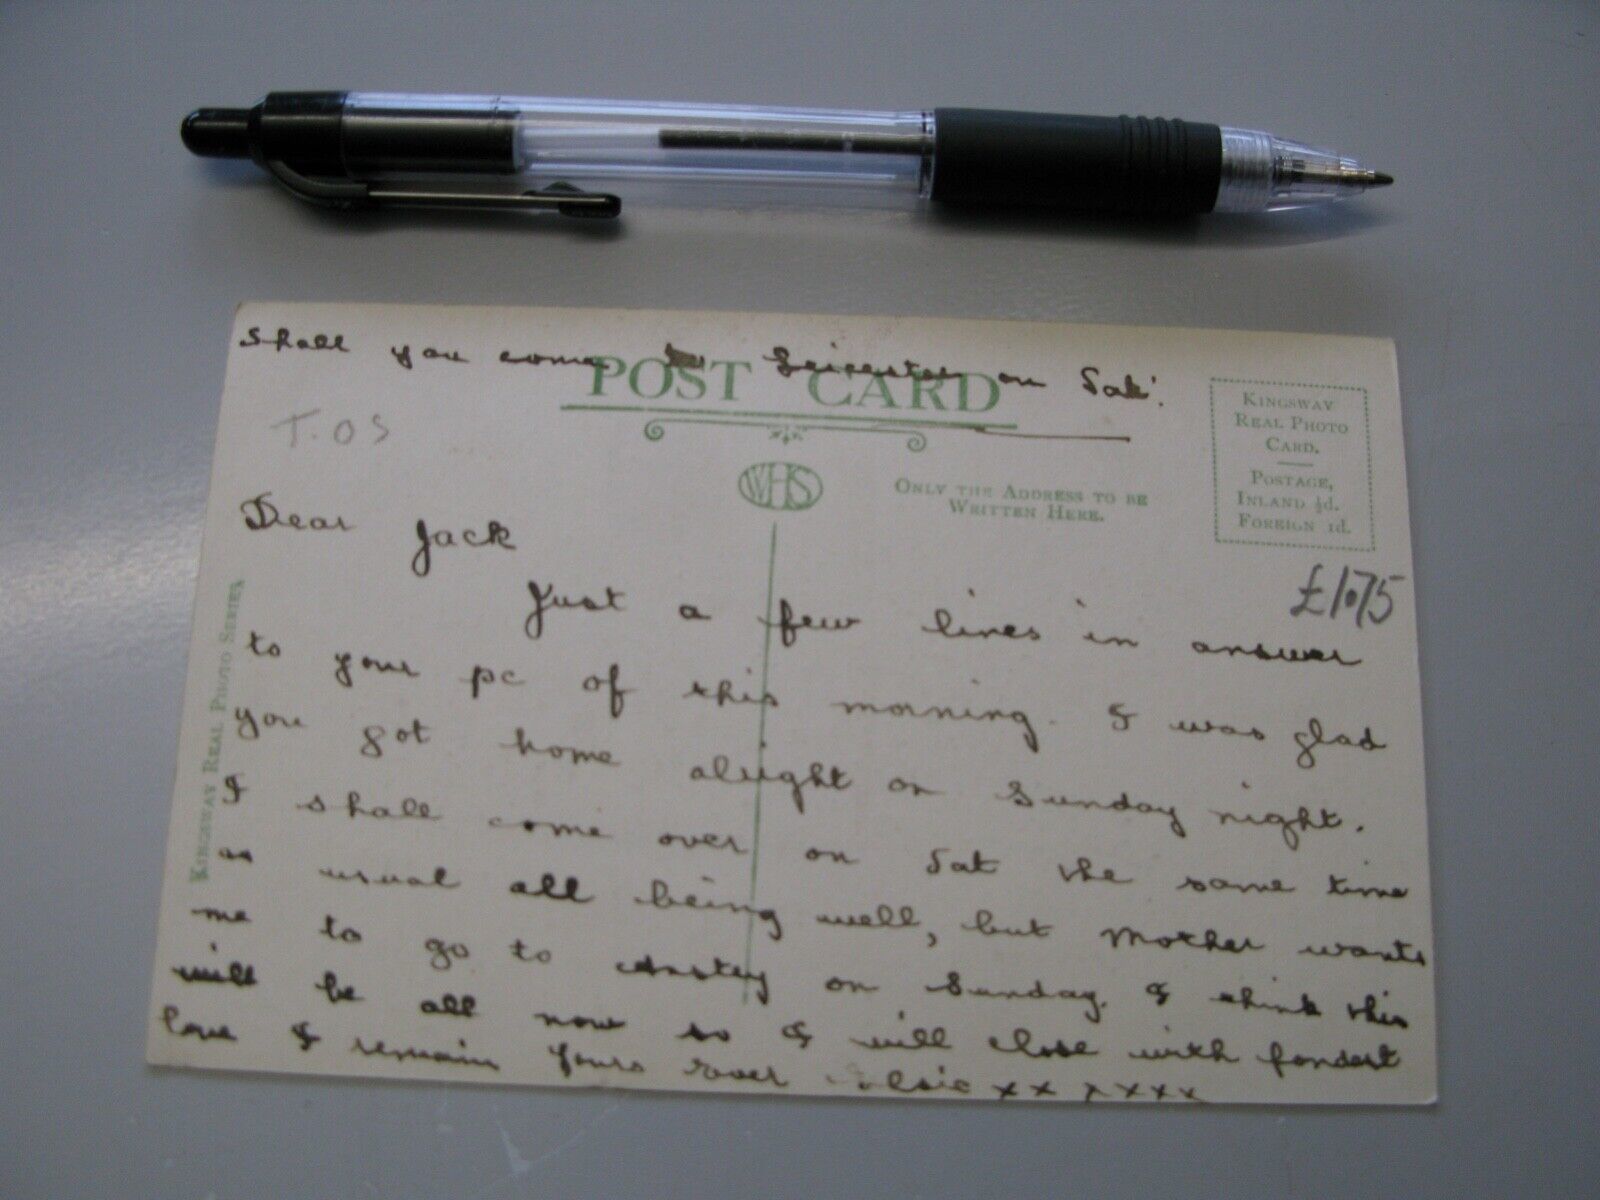 shall you come to Leicester on Sat'.
POST CARD
T.OS
WHS
ONLY THE ADDRESS TO BE
WRITTEN HERE.
KINGSWAY
REAL PHOTO
CARD.
POSTAGE,
INLAND ½d.
FOREIGN 1d.
£1.75
KINGSWAY REAL PHOTO SERIES
Dear Jack
Just a few lines in answer
to your pc of this morning. I was glad
you got home alright on Sunday night.
I shall come over on Sat the same time
as usual all being well, but Mother wants
me to go to Anstey on Sunday. I think this
will be all now so I will close with fondest
love & remain Yours Ever Elsie xx xxxx